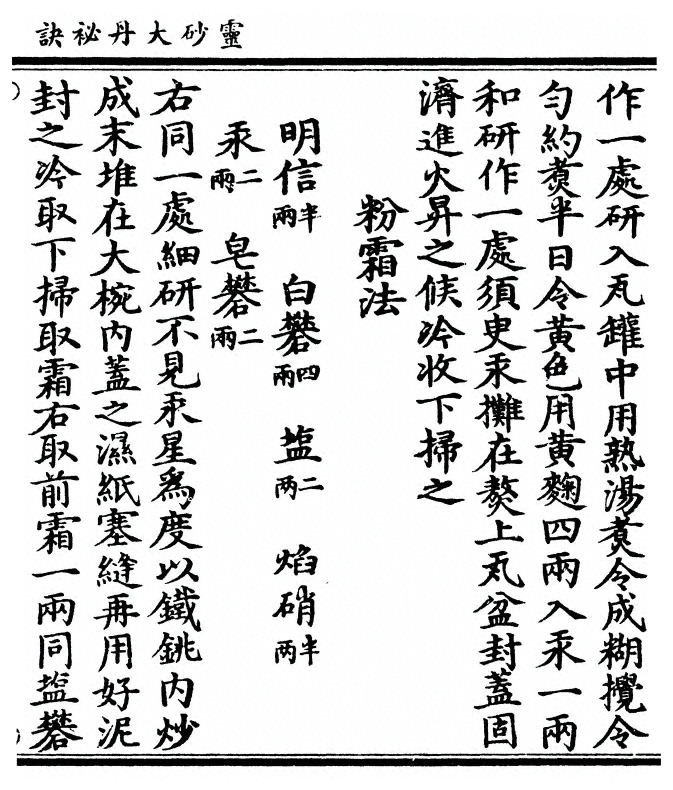 靈砂大丹祕訣
作一處研入瓦罐中用熟湯煑令成糊攪令
勻約煑半日令黃色用黃麴四兩入汞一兩
和研作一處須臾汞攤在𤎅上瓦盆封蓋固
濟進火昇之候冷收下掃之
粉霜法
明信半兩 白礬四兩 塩二两 焰硝半两
汞二兩 皂礬二兩
右同一處細研不見汞星爲度以鐵銚内炒
成末堆在大椀内蓋之濕紙塞縫再用好泥
封之冷取下掃取霜右取前霜一兩同塩礬